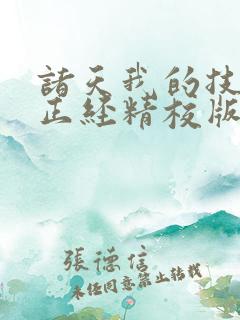 諸天我的技
正經精校版
張德信
未經同意禁止轉載